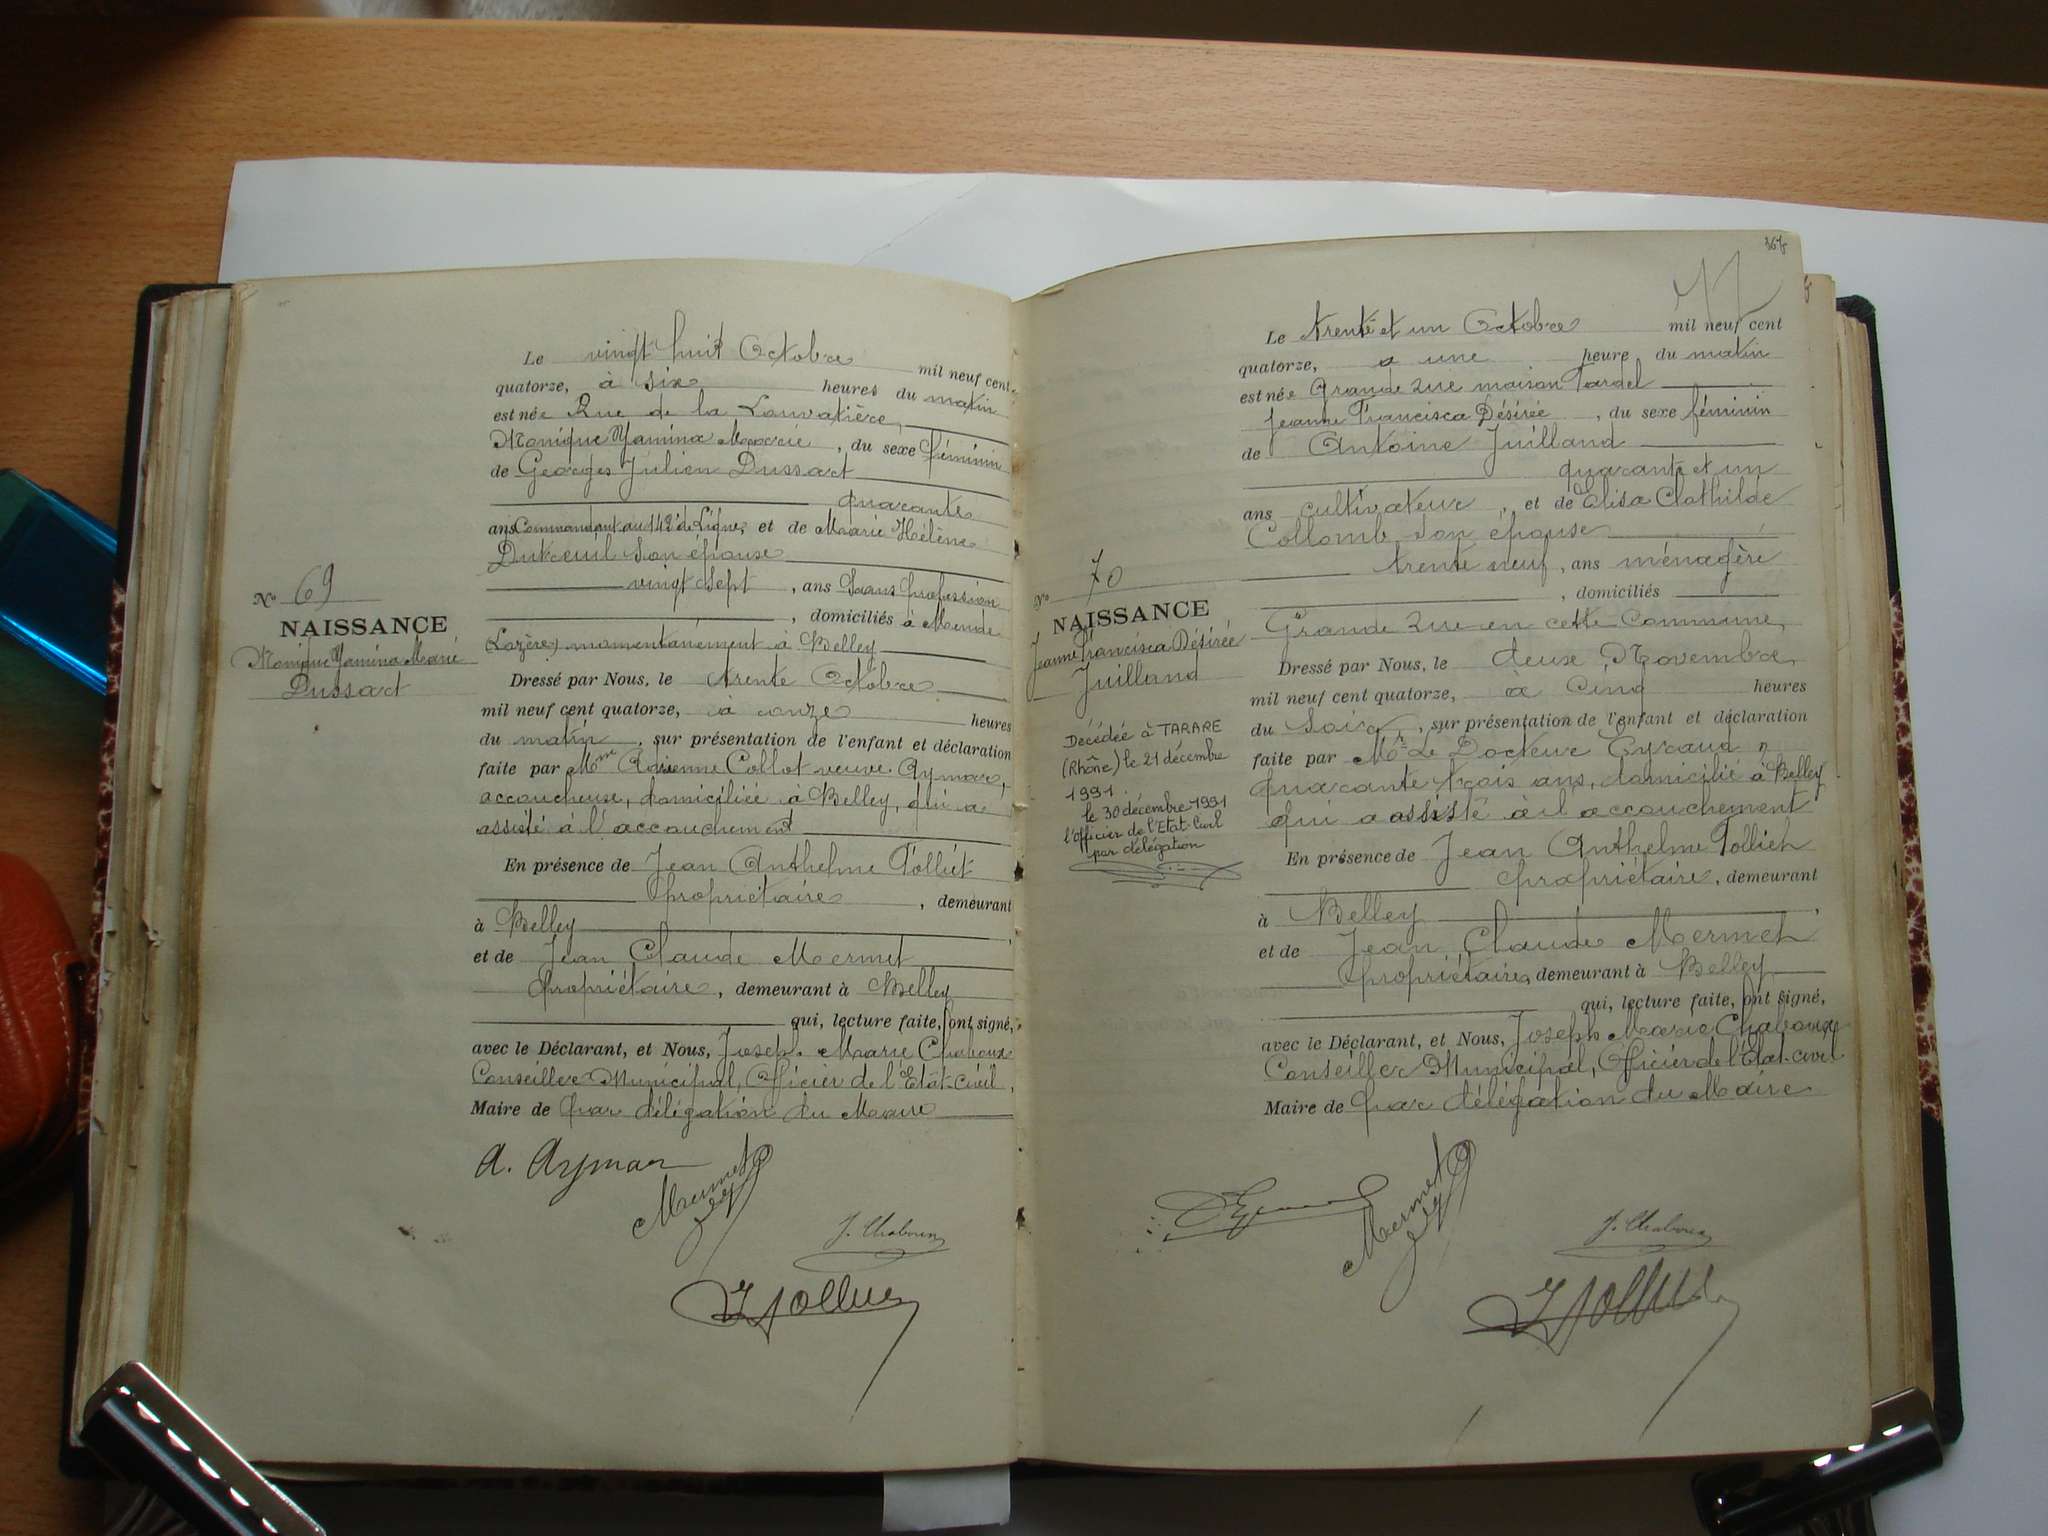 Le vingt huit Octobre mil neuf cent
quatorze, à six heures du matin
est née Rue de la Louvatière,
Monique Yamina Marie, du sexe féminin
de Georges Julien Dussart
quarante
ans Commandant au 142e de Ligne, et de Marie Hélène
Duteuil son épouse
vingt sept, ans Sans profession
, domiciliés à Mende
(Lozère) momentanément à Belley
Nº 69
NAISSANCE
Monique Yamina Marie
Dussart
Dressé par Nous, le trente Octobre
mil neuf cent quatorze, à onze heures
du matin, sur présentation de l'enfant et déclaration
faite par Mme Adrienne Collot veuve Aymar,
accoucheuse, domiciliée à Belley, qui a
assisté à l'accouchement
En présence de Jean Anthelme Polliet
propriétaire, demeurant
à Belley,
et de Jean Claude Mermet
propriétaire, demeurant à Belley
qui, lecture faite, ont signé,
avec le Déclarant, et Nous, Joseph Marie Chaboux
Conseiller Municipal, Officier de l'Etat-civil,
Maire de par délégation du Maire
A. Aymar
Mermet
J. Chaboux
Le trente et un Octobre mil neuf cent
quatorze, a une heure du matin
est née Grande rue maison Tardel
Jeanne Francisca Désirée, du sexe féminin
de Antoine Juilland
quarante et un
ans cultivateur, et de Elisa Clothilde
Collomb son épouse
trente neuf, ans ménagère
, domiciliés
Grande rue en cette Commune,
Nº 70
NAISSANCE
Jeanne Francisca Désirée
Juilland
Décédée à TARARE
(Rhône) le 21 décembre
1991.
le 30 décembre 1991
l'Officier de l'Etat-Civil
par délégation
Dressé par Nous, le deux Novembre
mil neuf cent quatorze, à Cinq heures
du Soir, sur présentation de l'enfant et déclaration
faite par Mr Le Docteur
quarante trois ans, domicilié à Belley
qui a assisté à l accouchement
En présence de Jean Anthelme Polliet
propriétaire, demeurant
à Belley,
et de Jean Claude Mermet
propriétaire, demeurant à Belley
qui, lecture faite, ont signé,
avec le Déclarant, et Nous, Joseph Marie Chaboux
Conseiller Municipal, Officier de l'Etat-civil
Maire de par délégation du Maire
Mermet
J. Chaboux